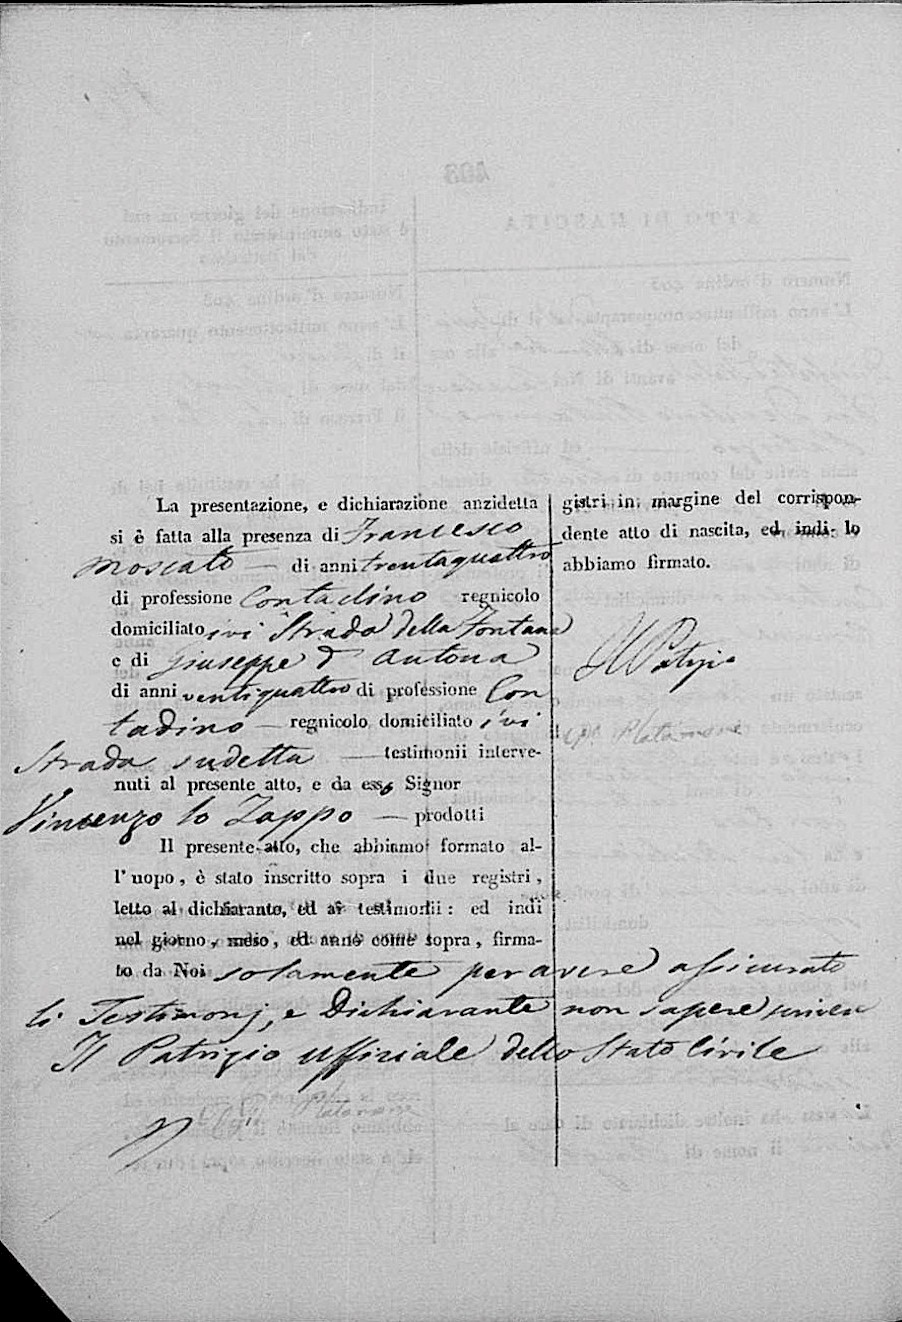 La presentazione, e dichiarazione anzidetta
si è fatta alla presenza di Francesco
Moscato — di anni trentaquattro
di professione Contadino regnicolo
domiciliato ivi Strada della Fontana
e di Giuseppe D'Antona
di anni ventiquattro di professione Con
tadino — regnicolo domiciliato ivi
Strada sudetta — testimonii interve-
nuti al presente atto, e da esso Signor
Vincenzo lo Zappo — prodotti
Il presente atto, che abbiamo formato al-
l'uopo, è stato inscritto sopra i due registri,
letto al dichiarante, ed ai testimonii: ed indi
nel giorno, mese, ed anno come sopra, firma-
to da Noi solamente per avere assicurato
li Testimonj, e Dichiarante non sapere scrivere
Il Patrizio Uffiziale dello Stato Civile
Platamone
gistri in margine del corrispon-
dente atto di nascita, ed indi lo
abbiamo firmato.
Il Patrizio
Platamone